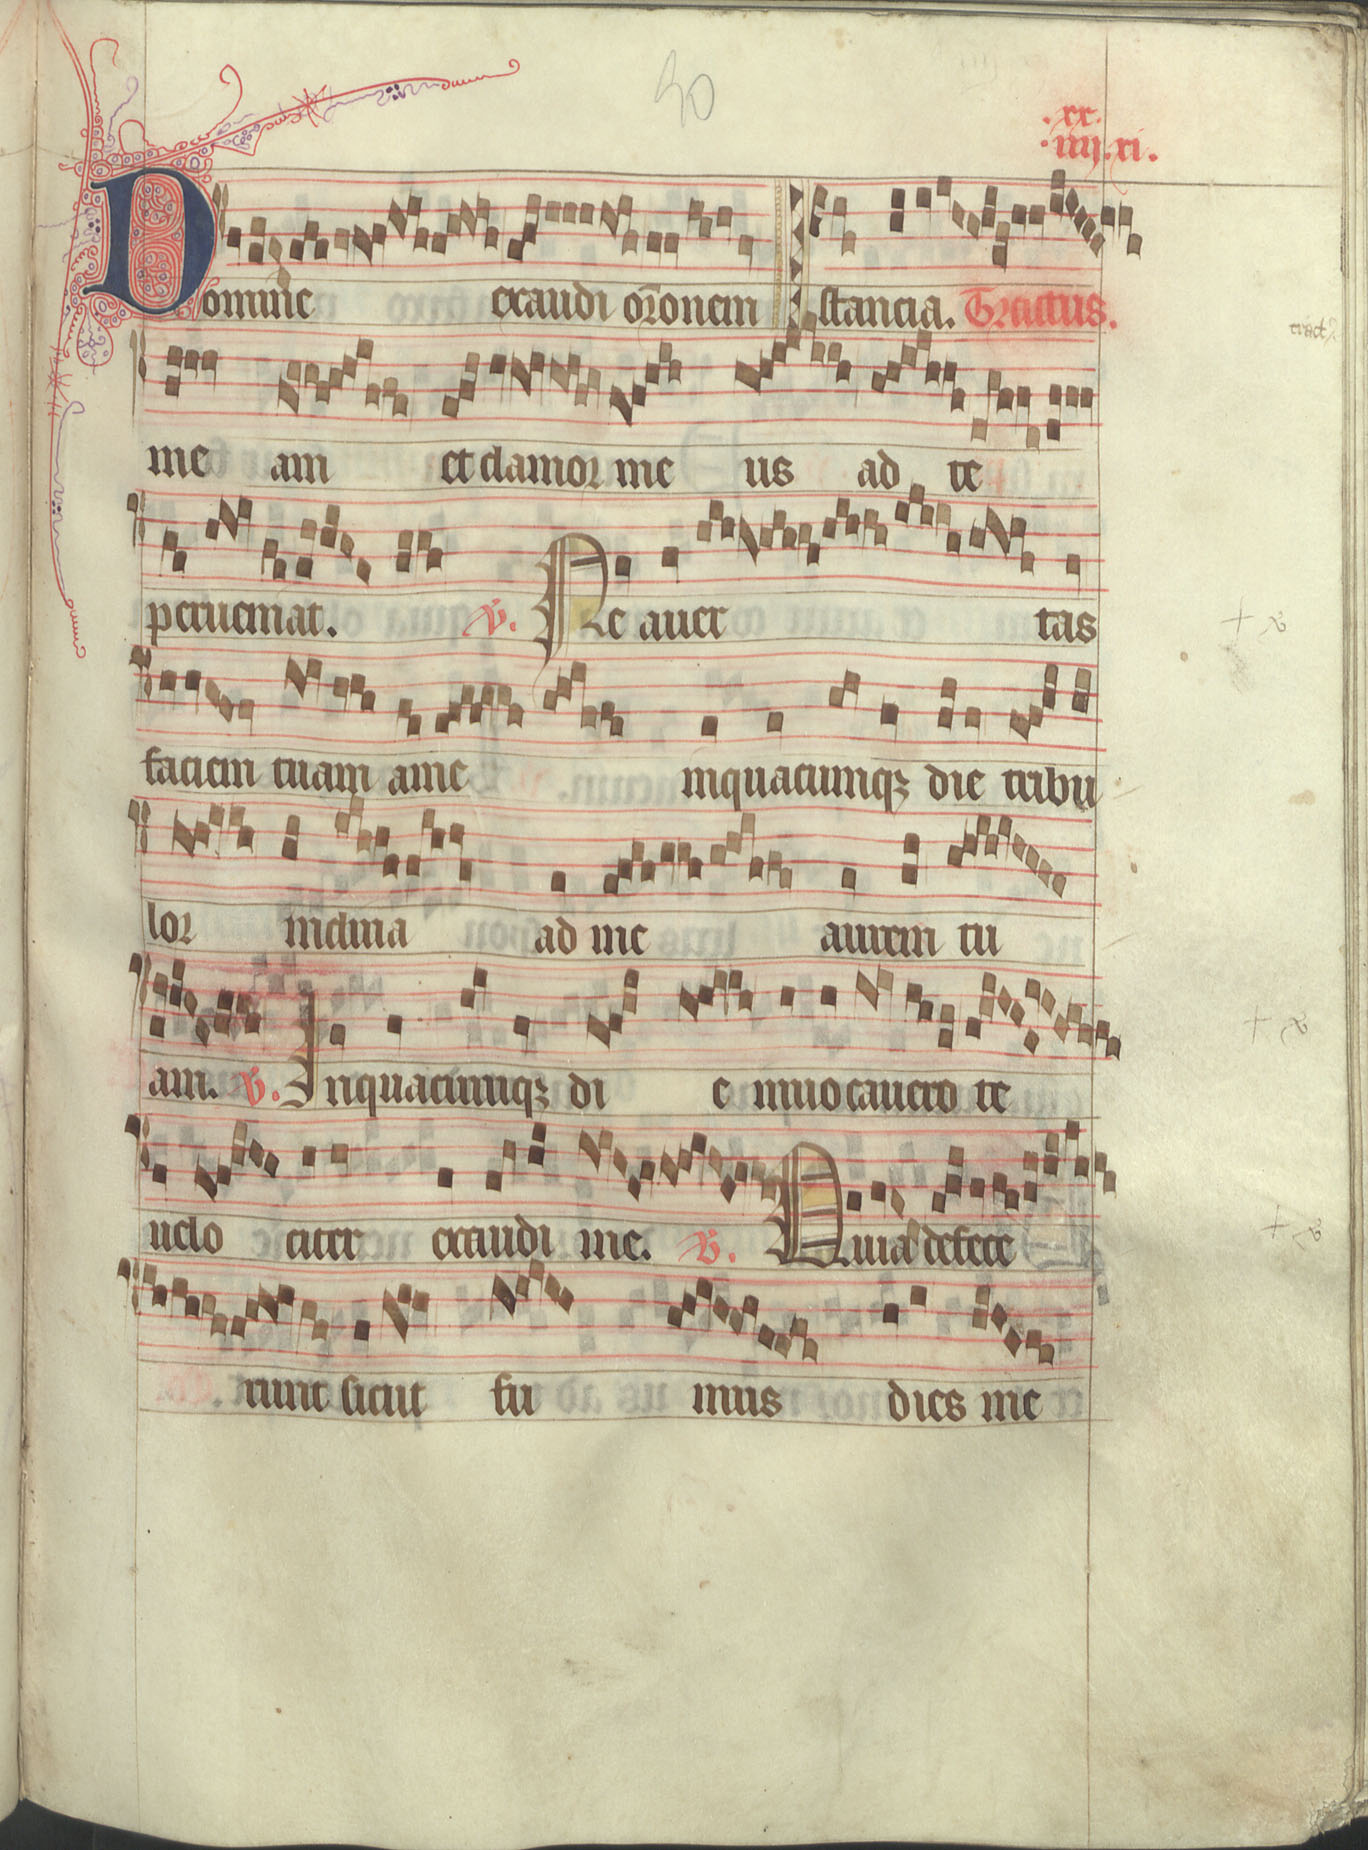 90
.xx.
.iiij.xi.
Domine exaudi or̄onem stancia. Tractus.
tract9
me am et clamor me us ad te
perueniat. V. Ne auer tas
faciem tuam a me inquacumqꝫ die tribu
lor inclina ad me aurem tu
am. V. Inquacumqꝫ di e inuocauero te
uelo citer exaudi me. V. Quia defece
runt sicut fu mus dies me